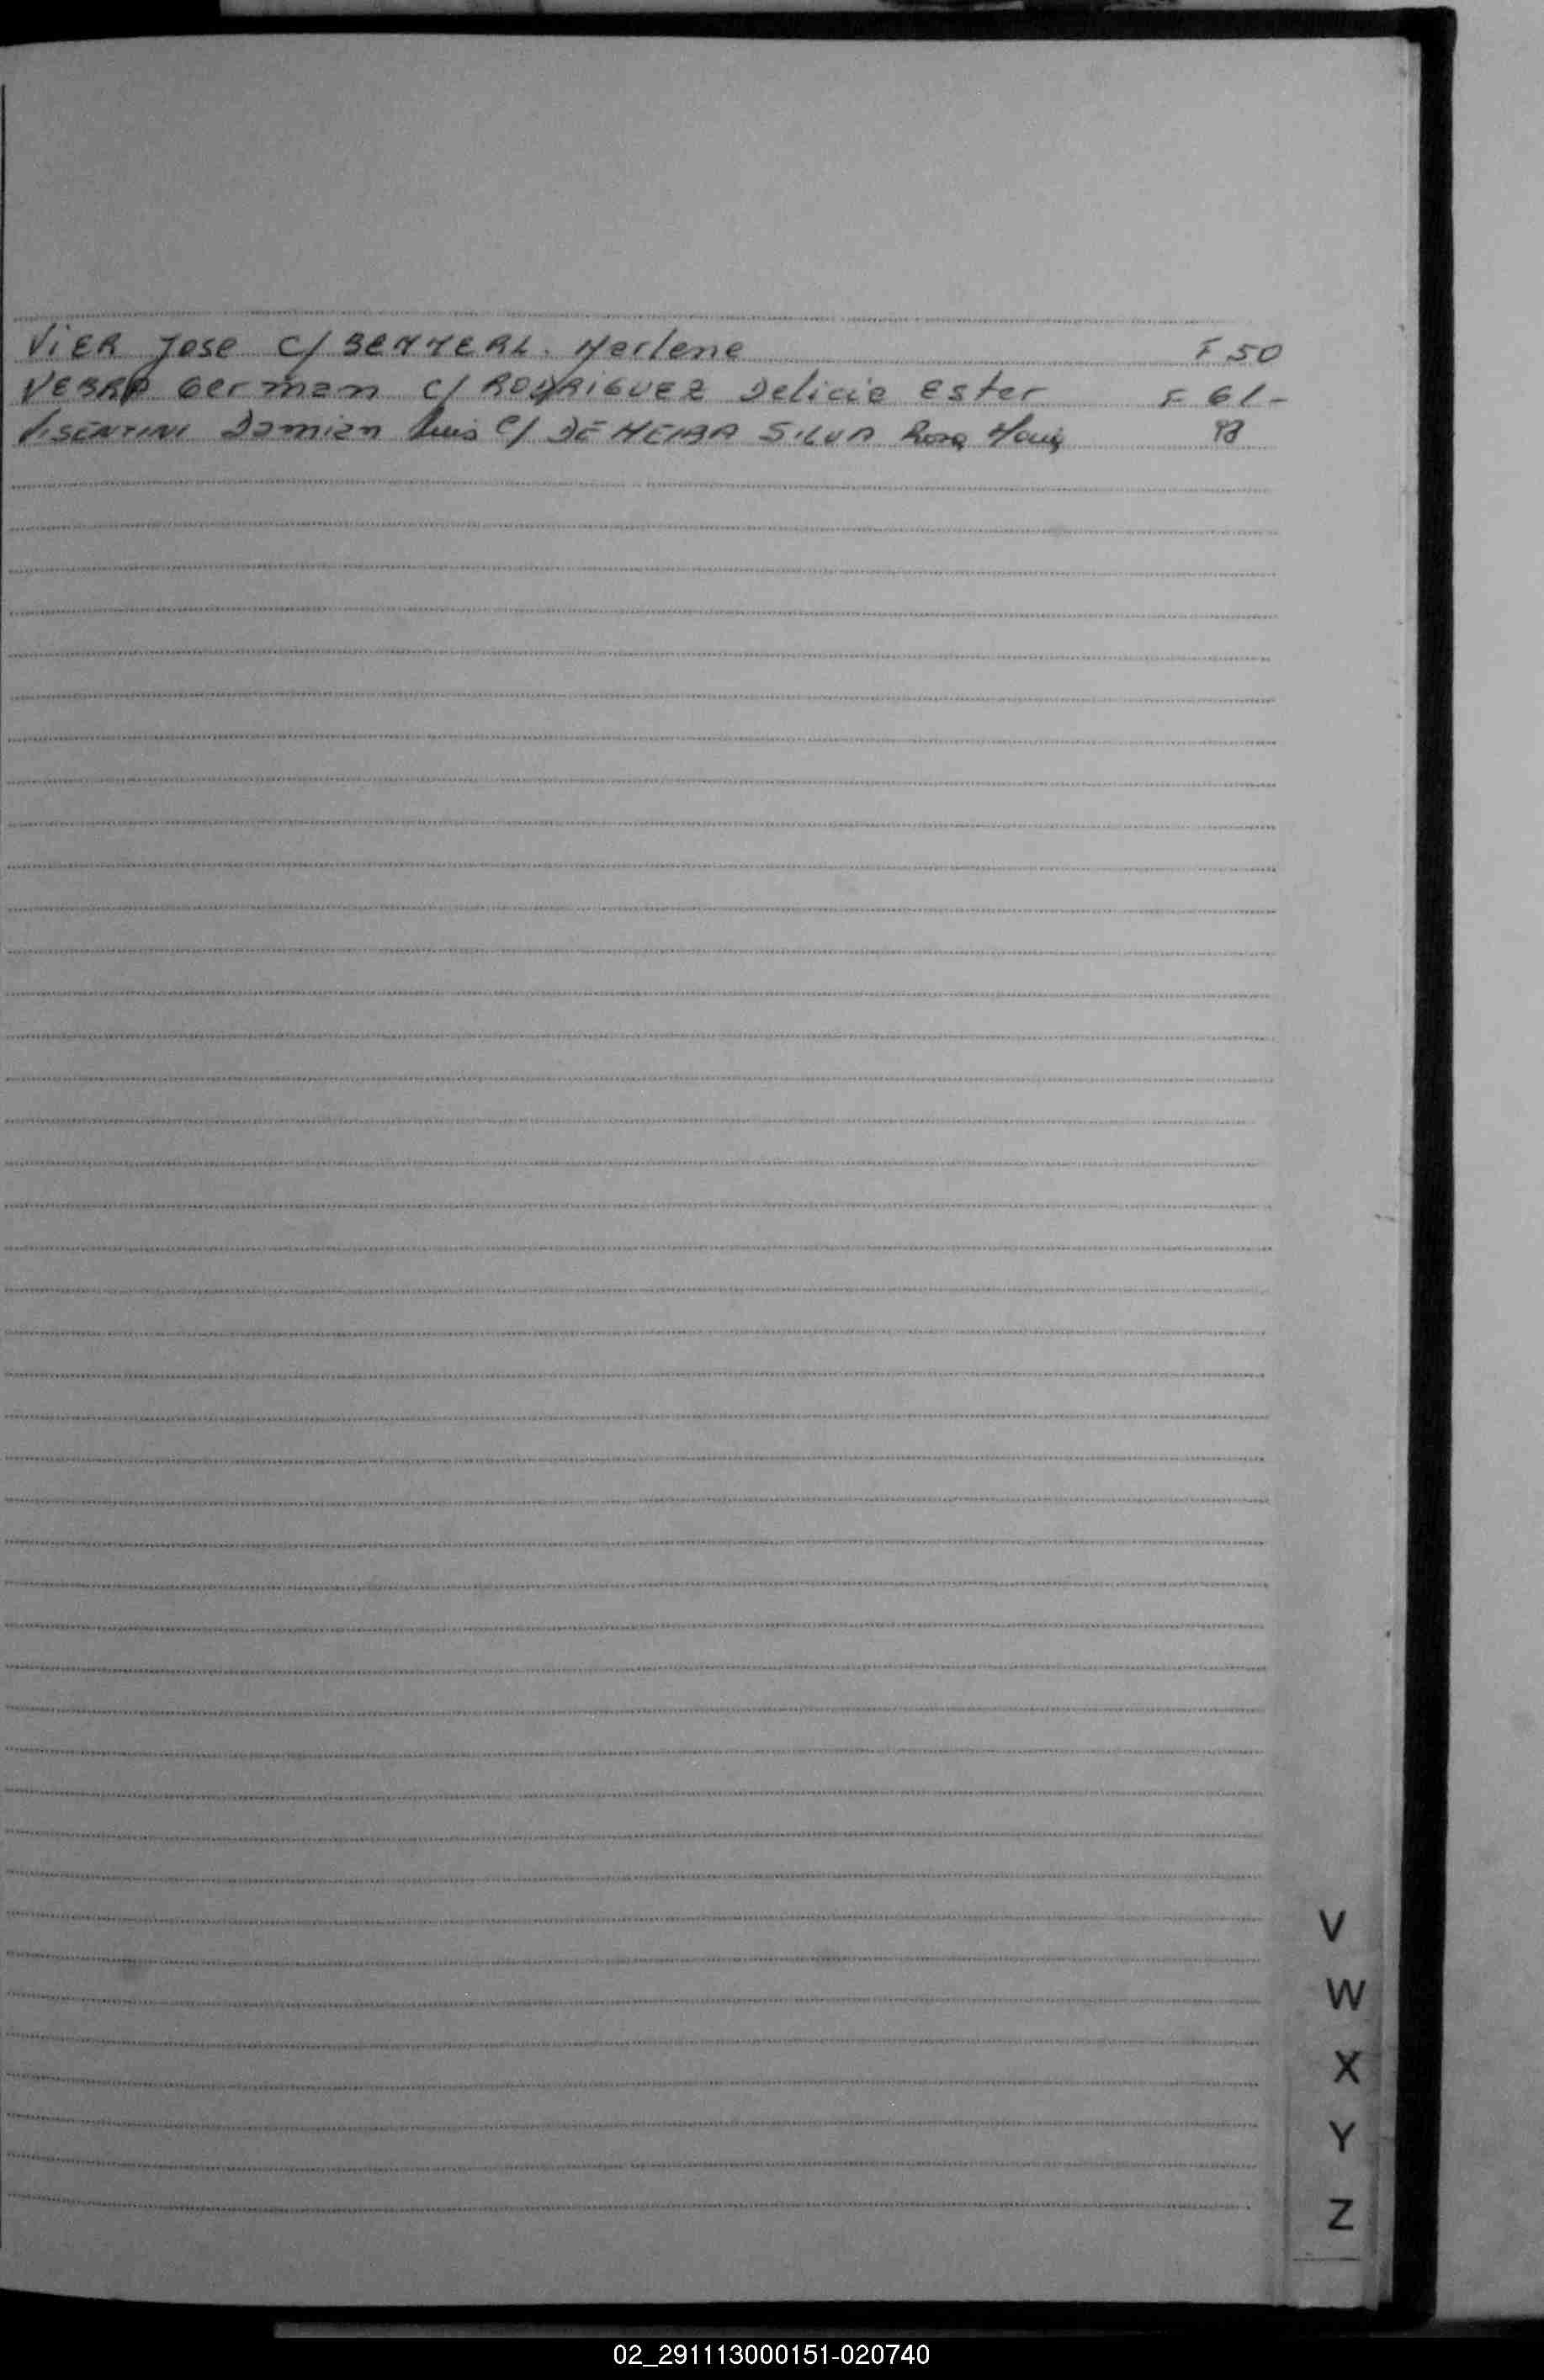 VIER Jose c/ BENTERL. Marlene F 50
VERRA German c/ RODRIGUEZ Delicia Ester F 61-
VISENTINI Damian Luis c/ DE MEIRA SILVA Rosa Maria 98
V
W
X
Y
Z
02_291113000151-020740